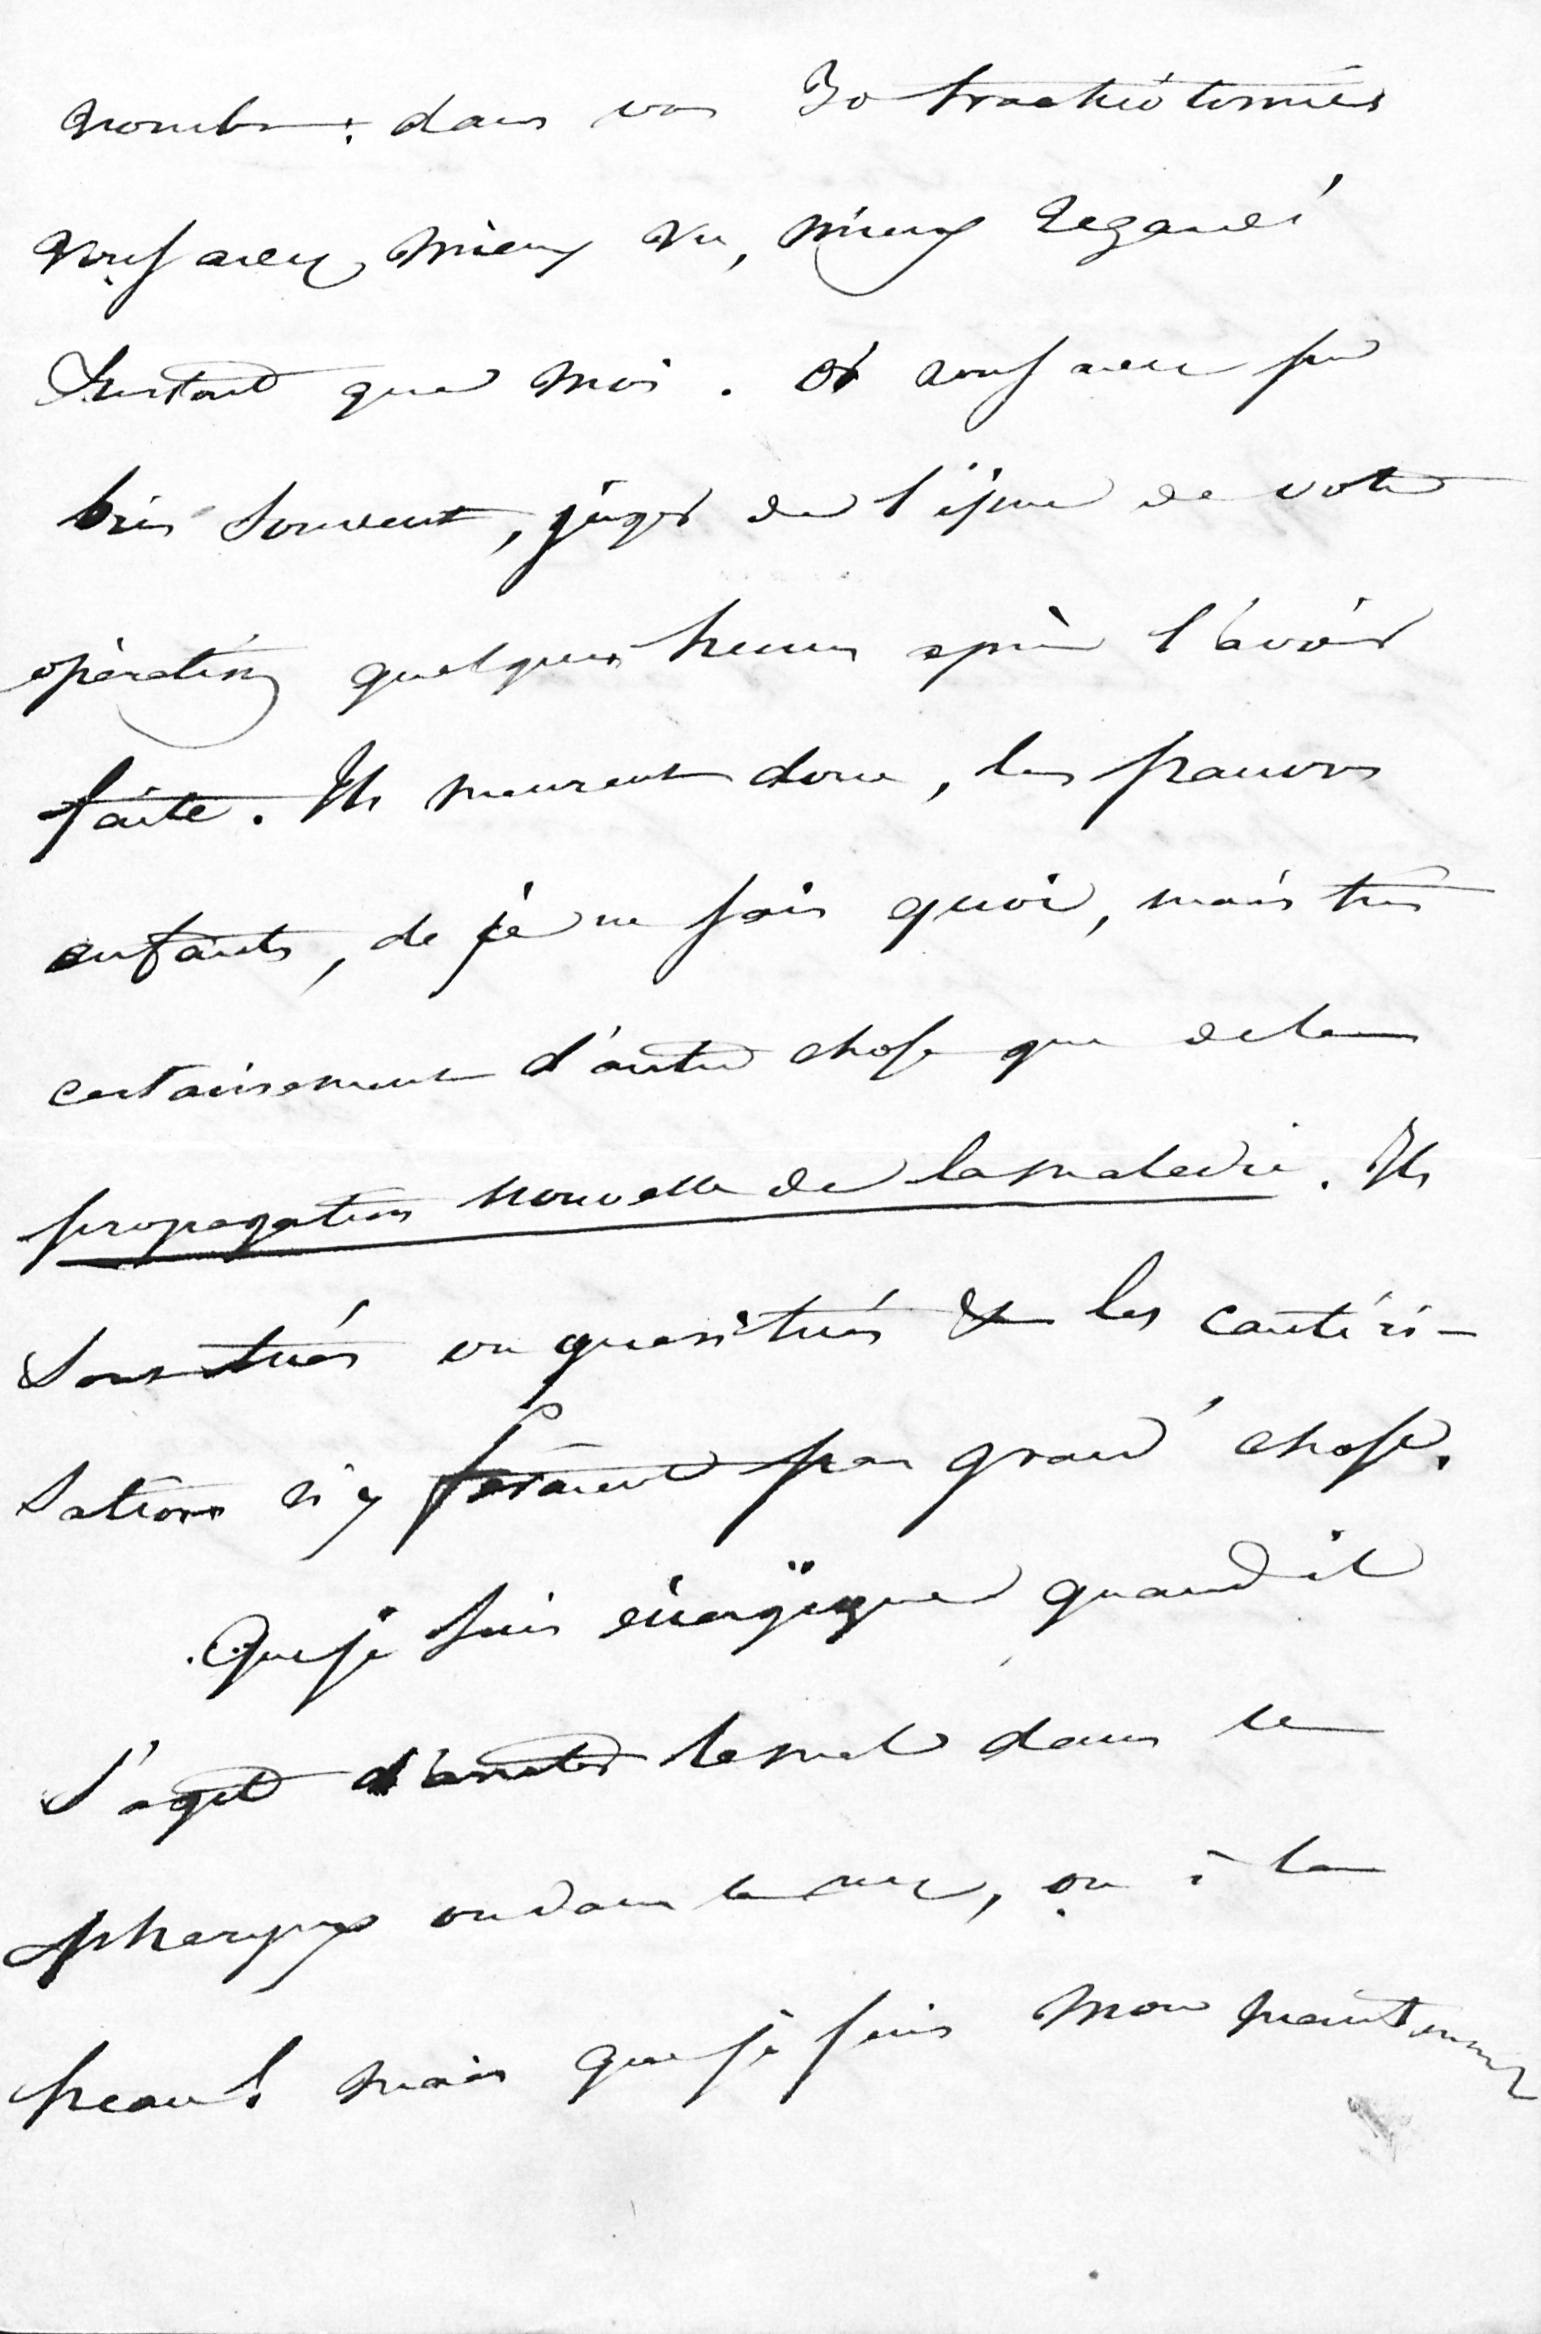 nombre: dans vos 30 trachéotomies
vous avez mieux vu, mieux regardé
surtout que moi. Or vous avez pu
bien souvent, juger de l'issue de votre
opération quelques heures après l'avoir
faite. Ils meurent donc, les pauvres
enfants, de je ne sais quoi, mais très
certainement d'autre chose que de la
propagation nouvelle de la maladie. Ils
sont tués ou quasi tués & les cautéri-
sations n'y feraient pas grand'chose.
Que je sois énergique quand il
s'agit d'arrêter le mal dans le
pharynx ou dans le nez, ou à la
peau! mais que je sois mou maintenant